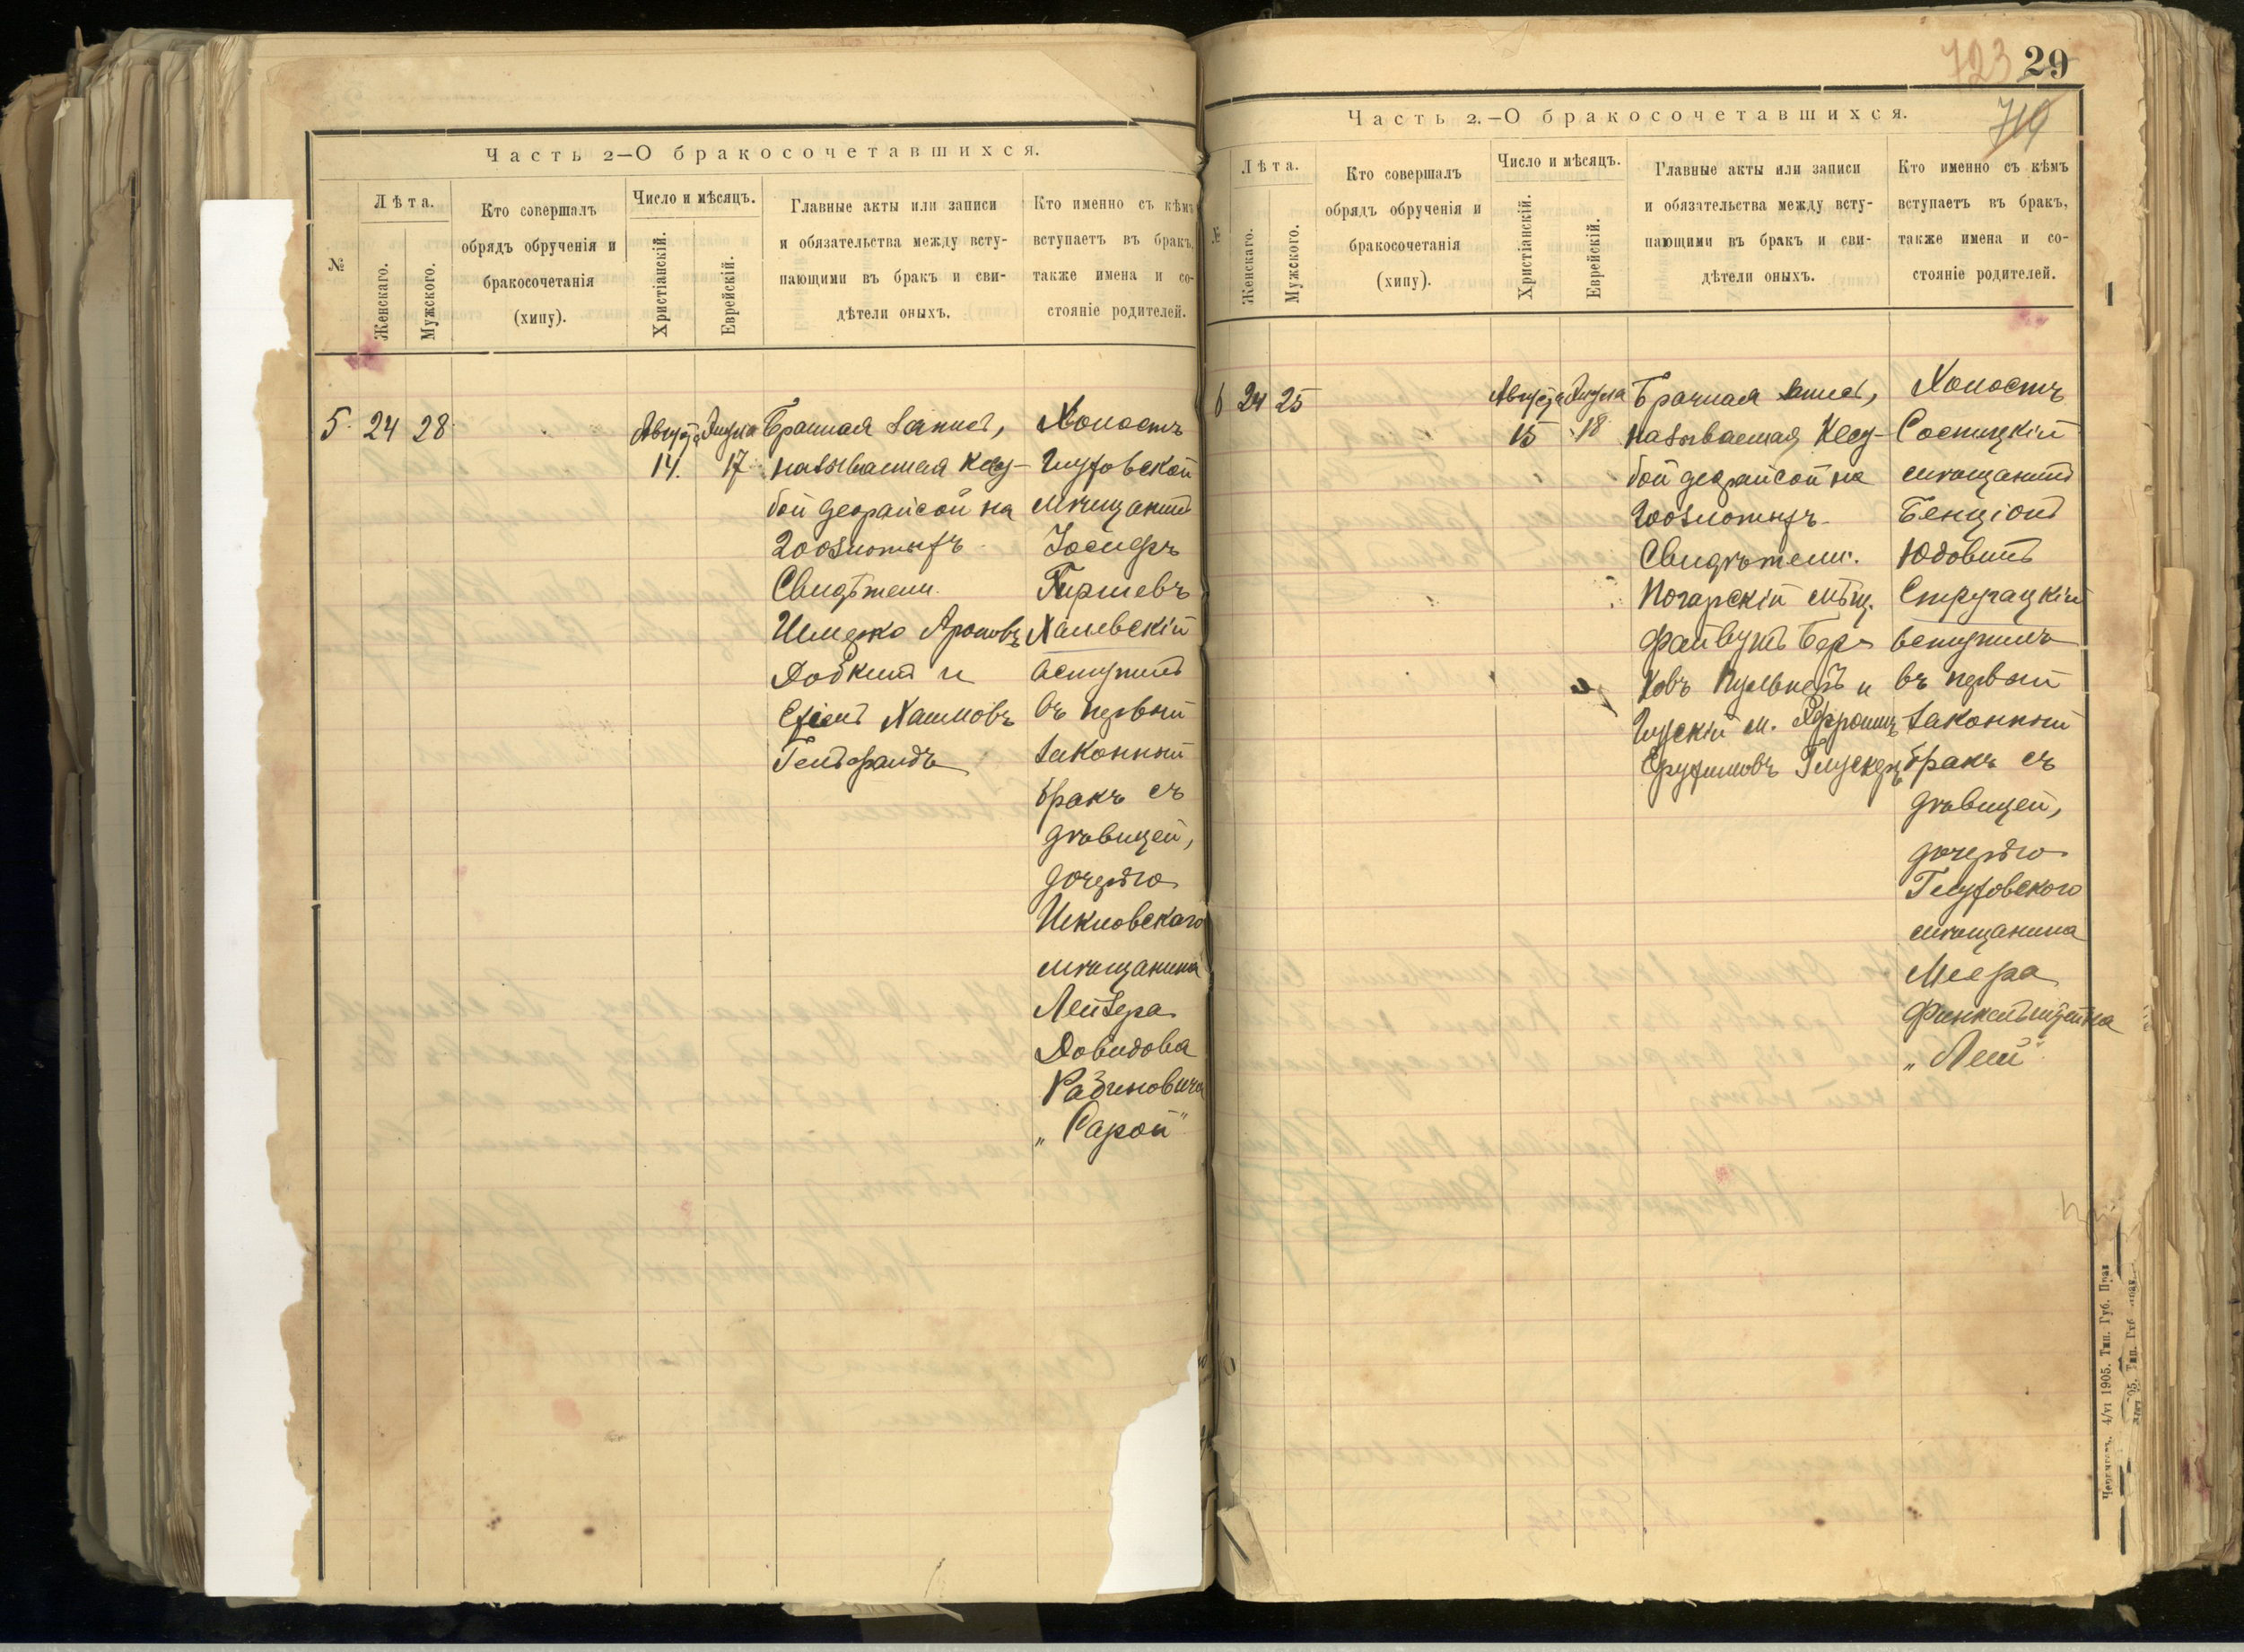 Часть 2—О бракосочетавшихся.
№
Лѣта.
Женскаго.
Мужского.
Кто совершалъ
обрядъ обрученія и
бракосочетанія
(хипу).
Число и мѣсяцъ.
Христіанскій.
Еврейскій.
Главные акты или записи
и обязательства между всту-
пающими въ бракъ и сви-
дѣтели оныхъ.
Кто именно съ кѣмъ
вступаетъ въ бракъ,
также имена и со-
стояніе родителей.
5. 24 28
Августа
14.
17
Брачная запись,
называемая Кесу-
бой деорайсой на
200 злотыхъ
Свидѣтели
Ароновъ
и
Хаимовъ
Гельфандъ
Холостъ
Глуховской
мѣщанинъ
Іосифъ
Гиршевъ
Халевскій
вступилъ
въ первый
законный
бракъ съ
дѣвицей,
дочерью
Шкловскаго
мѣщанина
Лейзера
Довидова
Рабиновича
„Сарой"
723 29
719
Часть 2.—О бракосочетавшихся.
№
Лѣта.
Женскаго.
Мужского.
Кто совершалъ
обрядъ обрученія и
бракосочетанія
(хипу).
Число и мѣсяцъ.
Христіанскій.
Еврейскій.
Главные акты или записи
и обязательства между всту-
пающими въ бракъ и сви-
дѣтели оныхъ.
Кто именно съ кѣмъ
вступаетъ въ бракъ,
также имена и со-
стояніе родителей.
6 24 25
Августа
15
18
Брачная запись,
называемая Кесу-
бой деорайсой на
200 злотыхъ
Свидѣтели.
Погарскій мѣщ.
Файвушъ Бер-
ковъ и
м.
Глускеръ
Холостъ
мѣщанинъ
Бенціонъ
Юдовичъ
Стругацкій
вступилъ
въ первый
законный
бракъ съ
дѣвицей,
дочерью
Глуховского
мѣщанина
Меера
Финкельштейна
„Леей"
4/VI 1905. Тип. Губ. Прав.